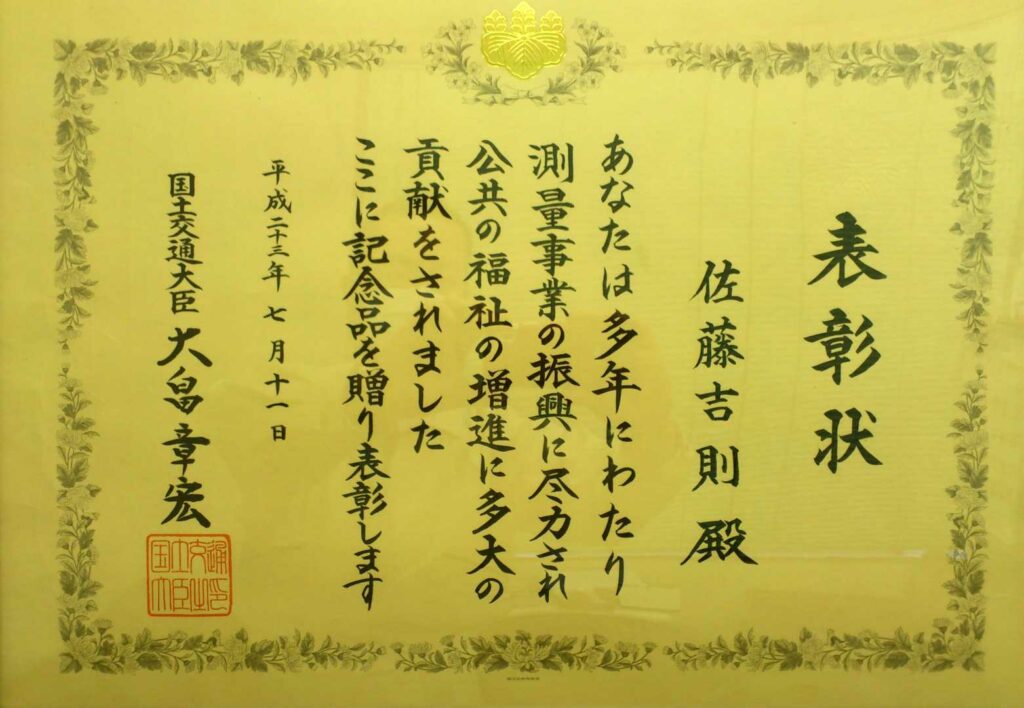 表彰状
佐藤吉則 殿
あなたは多年にわたり
測量事業の振興に尽力され
公共の福祉の増進に多大の
貢献をされました
ここに記念品を贈り表彰します
平成二十三年七月十一日
国土交通大臣 大畠章宏
国土交通大臣之印